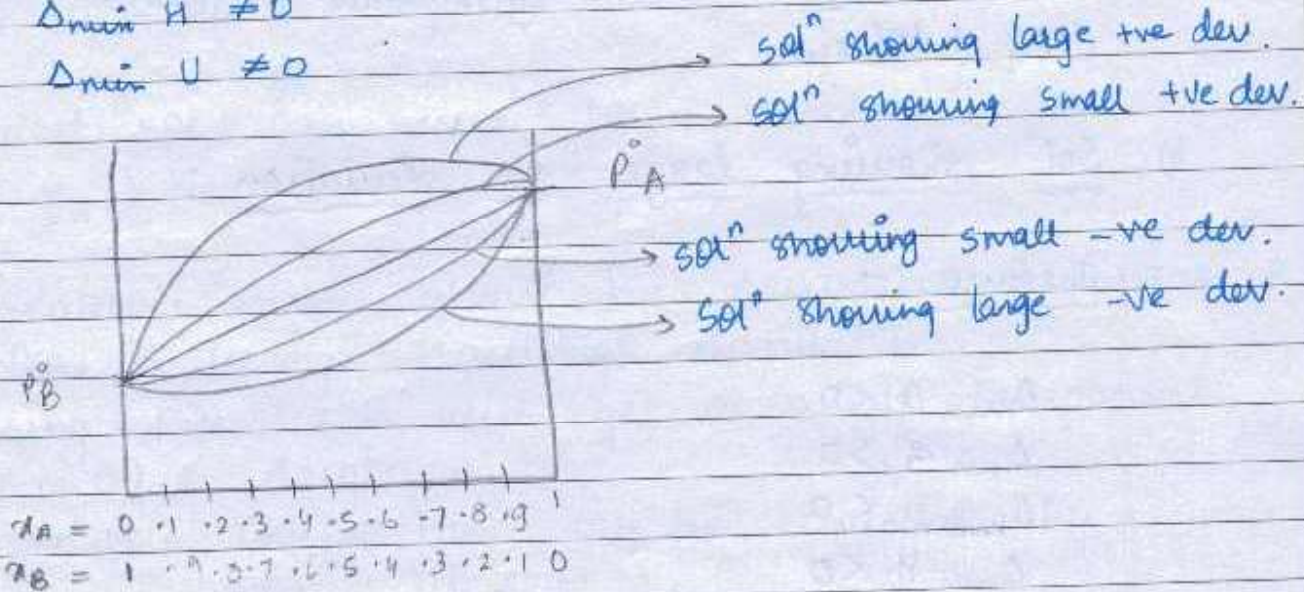 Δmix H ≠ 0
Δmix U ≠ 0
solⁿ showing large +ve dev.
solⁿ showing small +ve dev.
P°A
solⁿ showing small -ve dev.
solⁿ showing large -ve dev.
P°B
xA = 0 .1 .2 .3 .4 .5 .6 .7 .8 .9 1
xB = 1 .9 .8 .7 .6 .5 .4 .3 .2 .1 0